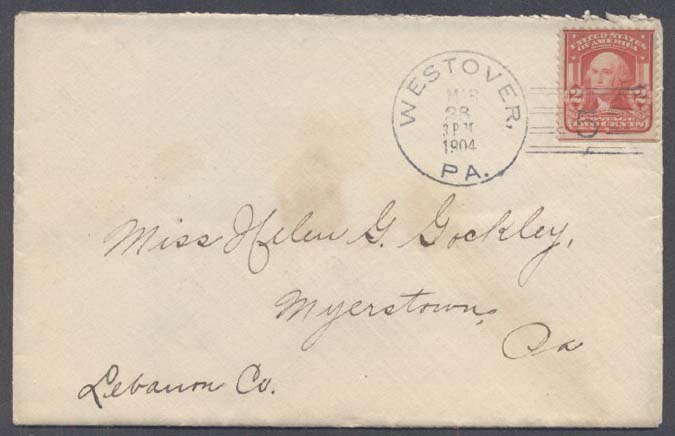 WESTOVER,
MAR
28
3 PM
1904
PA.
UNITED STATES
OF AMERICA
2 2
POSTAGE
TWO CENTS
Miss Helen G. Gockley,
Myerstown,
Pa
Lebanon Co.